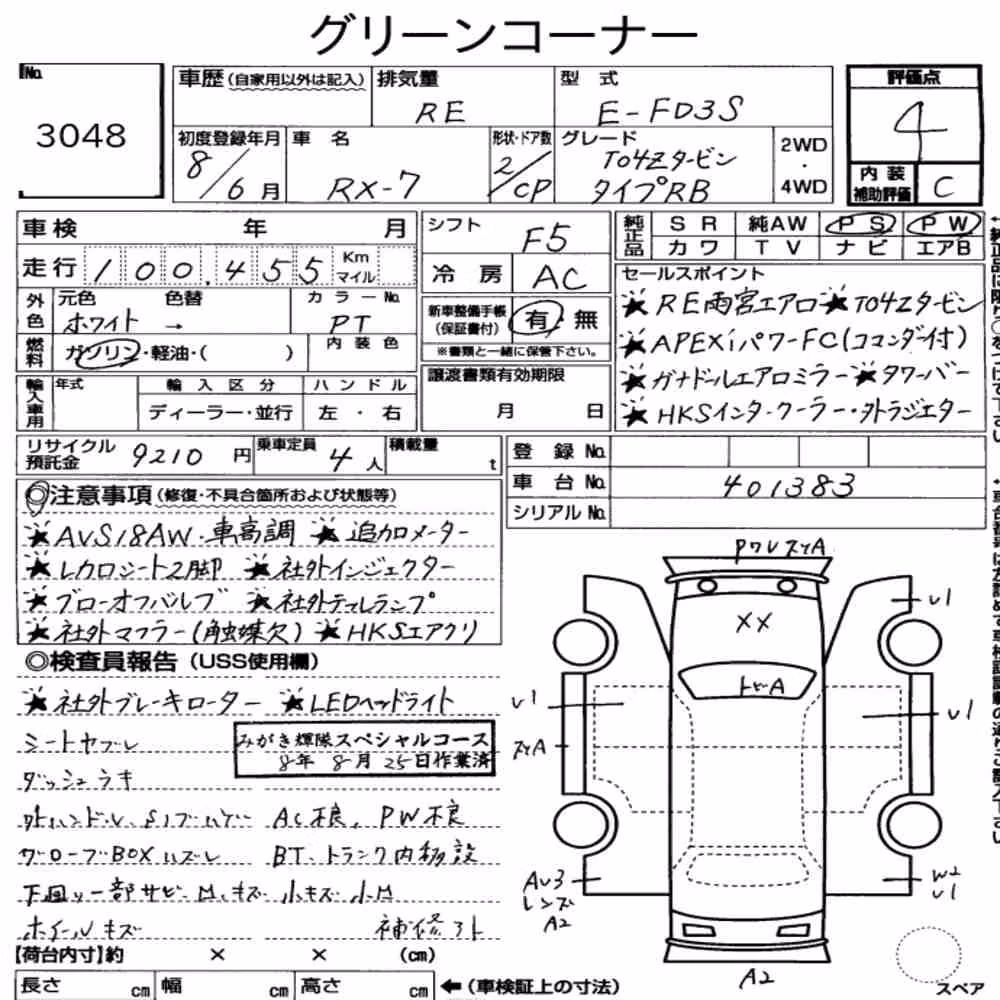 グリーンコーナー
No.
3048
車歴(自家用以外は記入) 排気量 RE 型式 E-FD3S
評価点 4
初度登録年月 8/6月 車名 RX-7 形状・ドア数 2/CP グレード T04Zタービン タイプRB 2WD・4WD
内装補助評価 C
車検 年 月 シフト F5 純正品 SR 純AW PS PW
カワ TV ナビ エアB
走行 100,455 Km マイル 冷房 AC
セールスポイント
★RE雨宮エアロ★T04Zタービン
★APEXiパワーFC(コマンダー付)
★ガナドールエアロミラー★タワーバー
★HKSインタークーラー・外トラジエター
外色 元色 ホワイト → 色替 カラーNo. PT
新車整備手帳(保証書付) 有 無
※書類と一緒に保管下さい。
燃料 ガソリン・軽油・( ) 内装色
譲渡書類有効期限
月 日
輸入車用 年式 輸入区分 ハンドル
ディーラー・並行 左・右
リサイクル預託金 9210円 乗車定員 4人 積載量 t
登録No.
車台No. 401383
シリアルNo.
◎注意事項(修復・不具合箇所および状態等)
★AVS18AW・車高調 ★追加メーター
★レカロシート2脚 ★社外インジェクター
★ブローオフバルブ ★社外テールランプ
★社外マフラー(触媒欠) ★HKSエアクリ
◎検査員報告(USS使用欄)
★社外ブレーキローター ★LEDヘッドライト
シートヤブレ
みがき輝隊スペシャルコース
8年 8月 25日作業済
ダッシュラキ
外ハンドル、S/ AC不良、PW不良
グローブBOXハズレ BT、トランク内移設
下回り一部サビ・凹、キズ 小キズ 小凹
ホイールキズ 補修アト
【荷台内寸】約 × × (cm)
長さ cm 幅 cm 高さ cm ←(車検証上の寸法)
PワレスレA
U1
XX
トビーA
U1
U1
スレA
AU3
レンズ
A2
W2
U1
A2
スペア